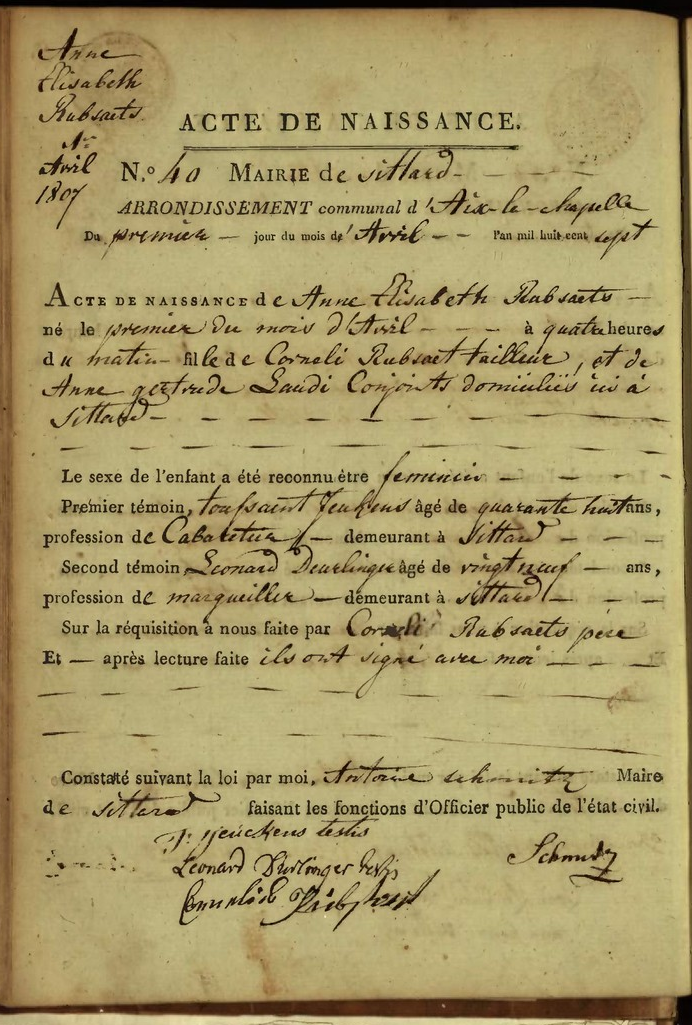 Anne
Elisabeth
Rubsaets
1r
Avril
1807
ACTE DE NAISSANCE.
N.o 40 MAIRIE de sittard
ARRONDISSEMENT communal d'Aix-la-chapelle
Du premier jour du mois de' Avril l'an mil huit cent sept
ACTE DE NAISSANCE de Anne Elisabeth Rubsaets
né le premier du mois d'Avril à quatre heures
du matin fille de Corneli Rubsaet tailleur, et de
Anne gertrude Laudi Conjoints domiciliés ici à
sittard
Le sexe de l'enfant a été reconnu être feminin
Premier témoin, toussaint Jeukens âgé de quarante huit ans,
profession de Cabaretier demeurant à Sittard
Second témoin Leonard Deurlinger âgé de vingt neuf ans,
profession de margueiller demeurant à sittard
Sur la réquisition à nous faite par Corneli Rubsaets père
Et après lecture faite ils ont signé avec moi
Constaté suivant la loi par moi, Antoine schmitz Maire
de sittard faisant les fonctions d'Officier public de l'état civil.
jeuckens testis
Leonard Durlinger testis
Schmitz